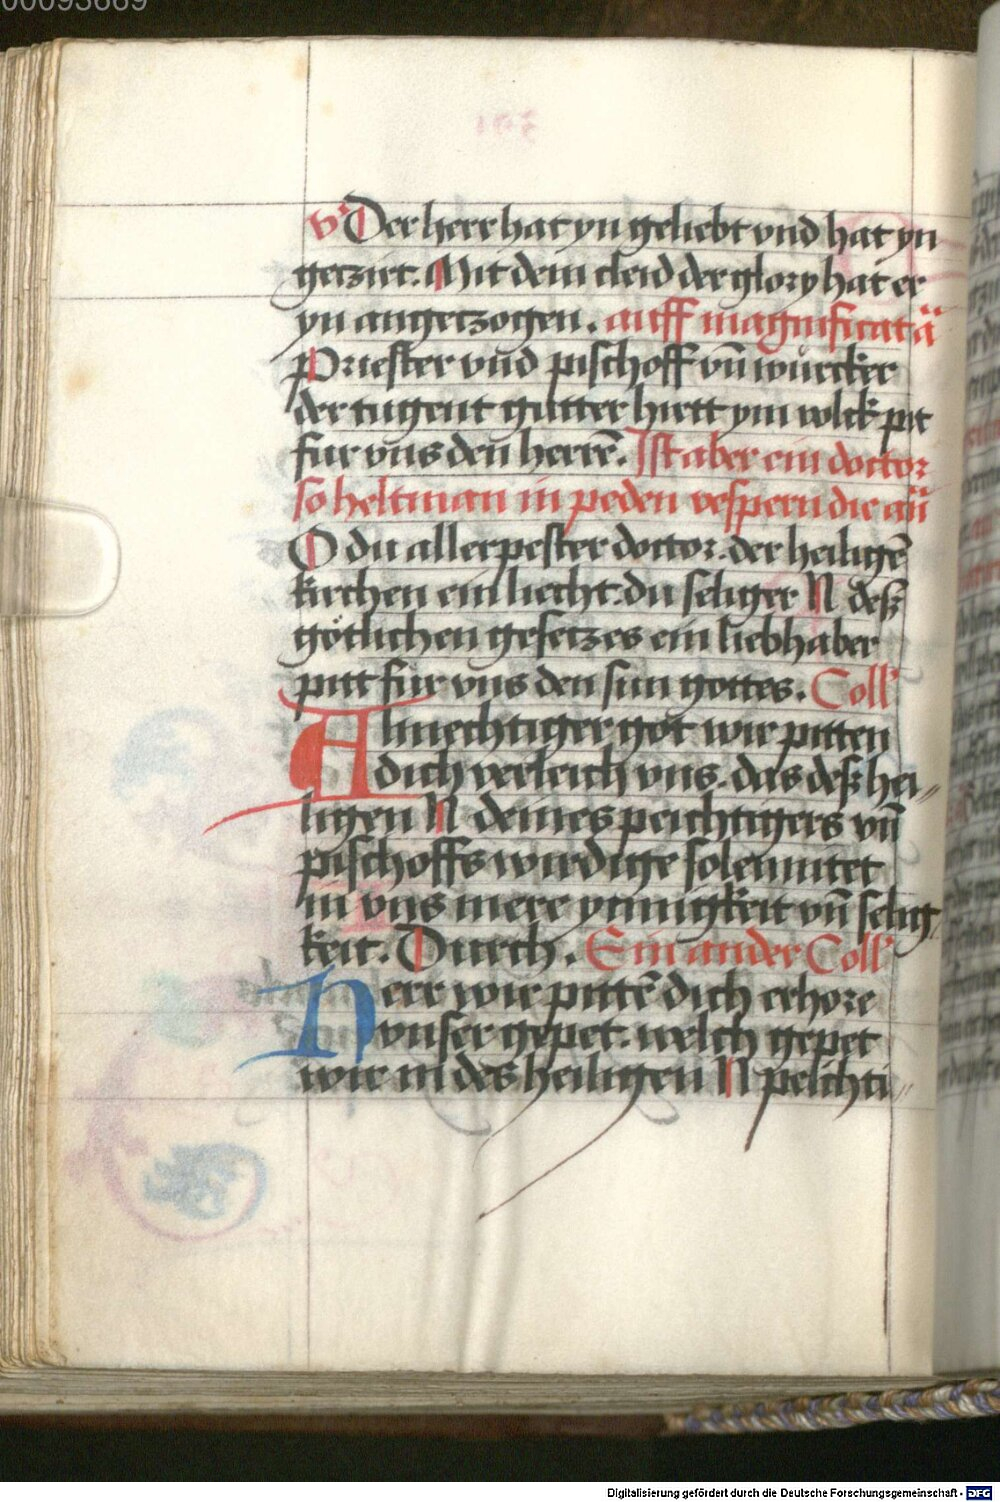 00093869
v̊ Der herr hat yn geliebt vnd hat yn
getzirt. Mit dem cleid der glory hat er
yn angetzogen. auff magnificat ā
Priester vnd pischoff vn̄ wurcker
der tugent gutter hirtt ym volck pit
fur vns den herrē. Ist aber ein doctor
so helt man in peden vespern die an̄
O du aller pester doctor. der heiligē
kirchen ein liecht. du seliger N desz
gôtlichen gesetzes ein liebhaber
pitt für vns den sun gottes. Coll'
Almechtiger got wir pitten
dich verleich vns. das desz hei//
ligen N deines peichtigers vn̄
pischoffs wirdige solennitet
in vns mere ynnigkeit vn̄ selig//
keit. Durch. Ein ander Coll'
Herr wir pittē dich erhore
vnser gepet. welch gepet
wir in des heiligen N peichti//
Digitalisierung gefördert durch die Deutsche Forschungsgemeinschaft - DFG